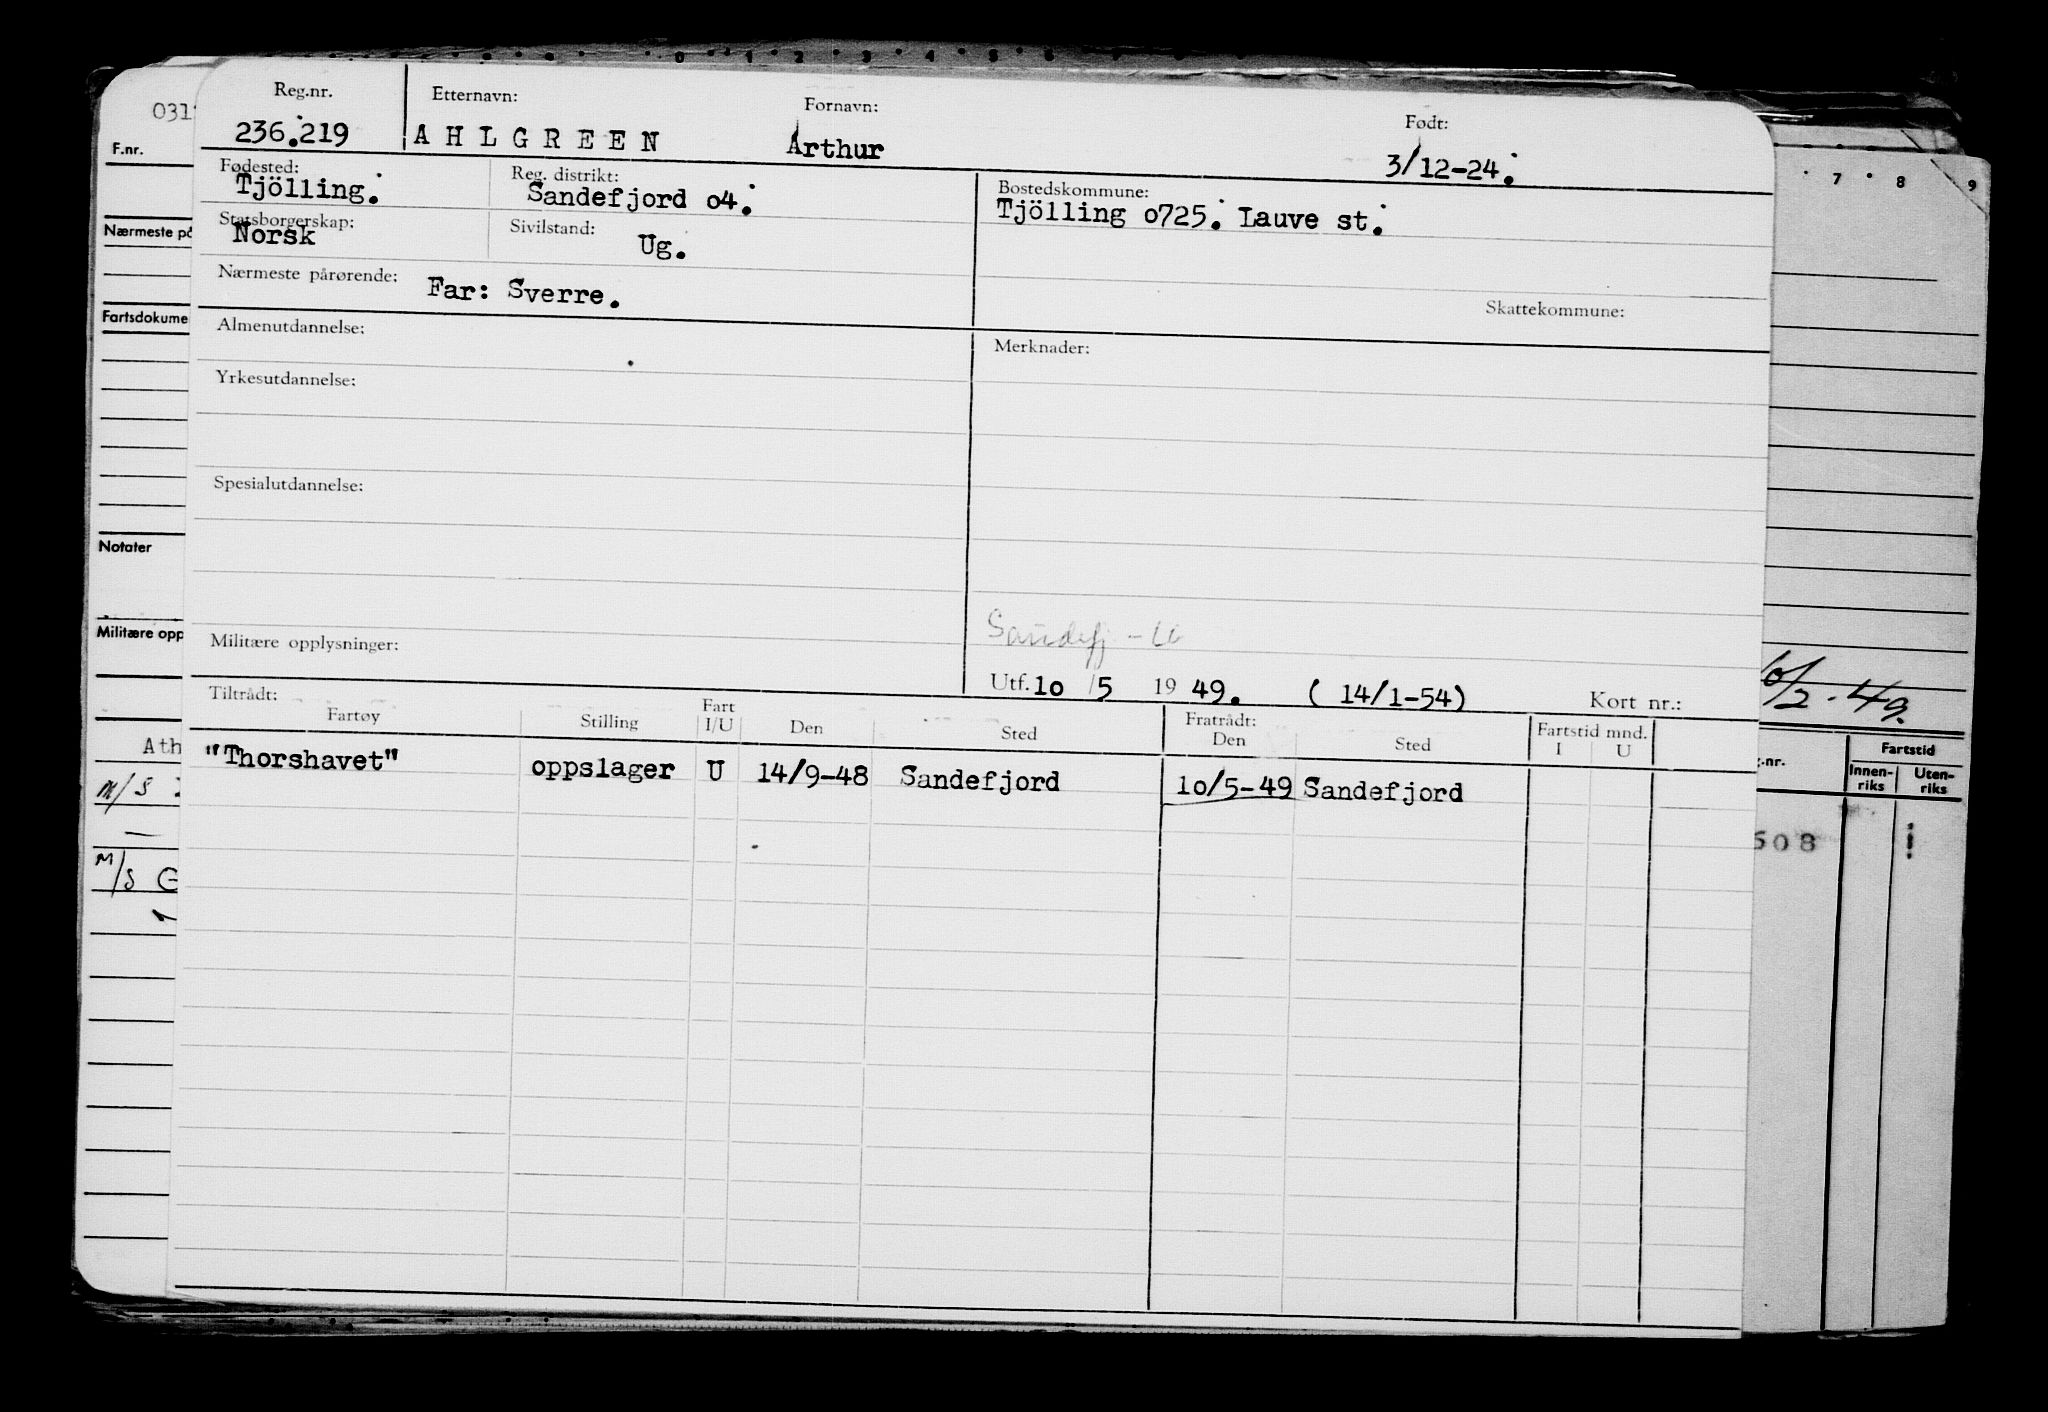 0 1 2 3 4 5 6 7
Reg.nr. Etternavn: Fornavn: Født:
236.219 AHLGREEN Arthur 3/12-24.
Fødested: Reg. distrikt: Bostedskommune:
Tjölling. Sandefjord o4. Tjölling o725. Lauve st.
Statsborgerskap: Sivilstand:
Norsk Ug.
Nærmeste pårørende: Far: Sverre.
Skattekommune:
Almenutdannelse: Merknader:
Yrkesutdannelse:
Spesialutdannelse:
Militære opplysninger:
Sandefj
Utf. 1o /5 19 49. ( 14/1-54) Kort nr.:
Tiltrådt: Fratrådt:
Fartøy Stilling Fart I/U Den Sted Den Sted Fartstid mnd. I U
"Thorshavet" oppslager U 14/9-48 Sandefjord 1o/5-49 Sandefjord
031
F.nr.
Nærmeste på
Fartsdokume
Notater
Militære opp
Ath
M/S
M/S G
7 8 9
.nr. Fartstid
Innen-riks Uten-riks
508